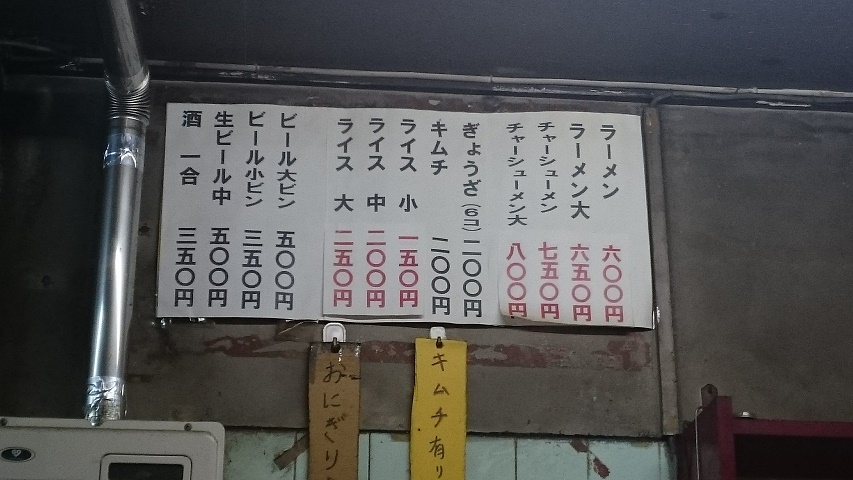 ラーメン 六〇〇円
ラーメン大 六五〇円
チャーシューメン 七五〇円
チャーシューメン大 八〇〇円
ぎょうざ(6コ) 二〇〇円
キムチ 二〇〇円
ライス 小 一五〇円
ライス 中 二〇〇円
ライス 大 二五〇円
ビール大ビン 五〇〇円
ビール小ビン 三五〇円
生ビール中 五〇〇円
酒 一合 三五〇円
キムチ有り
おにぎり